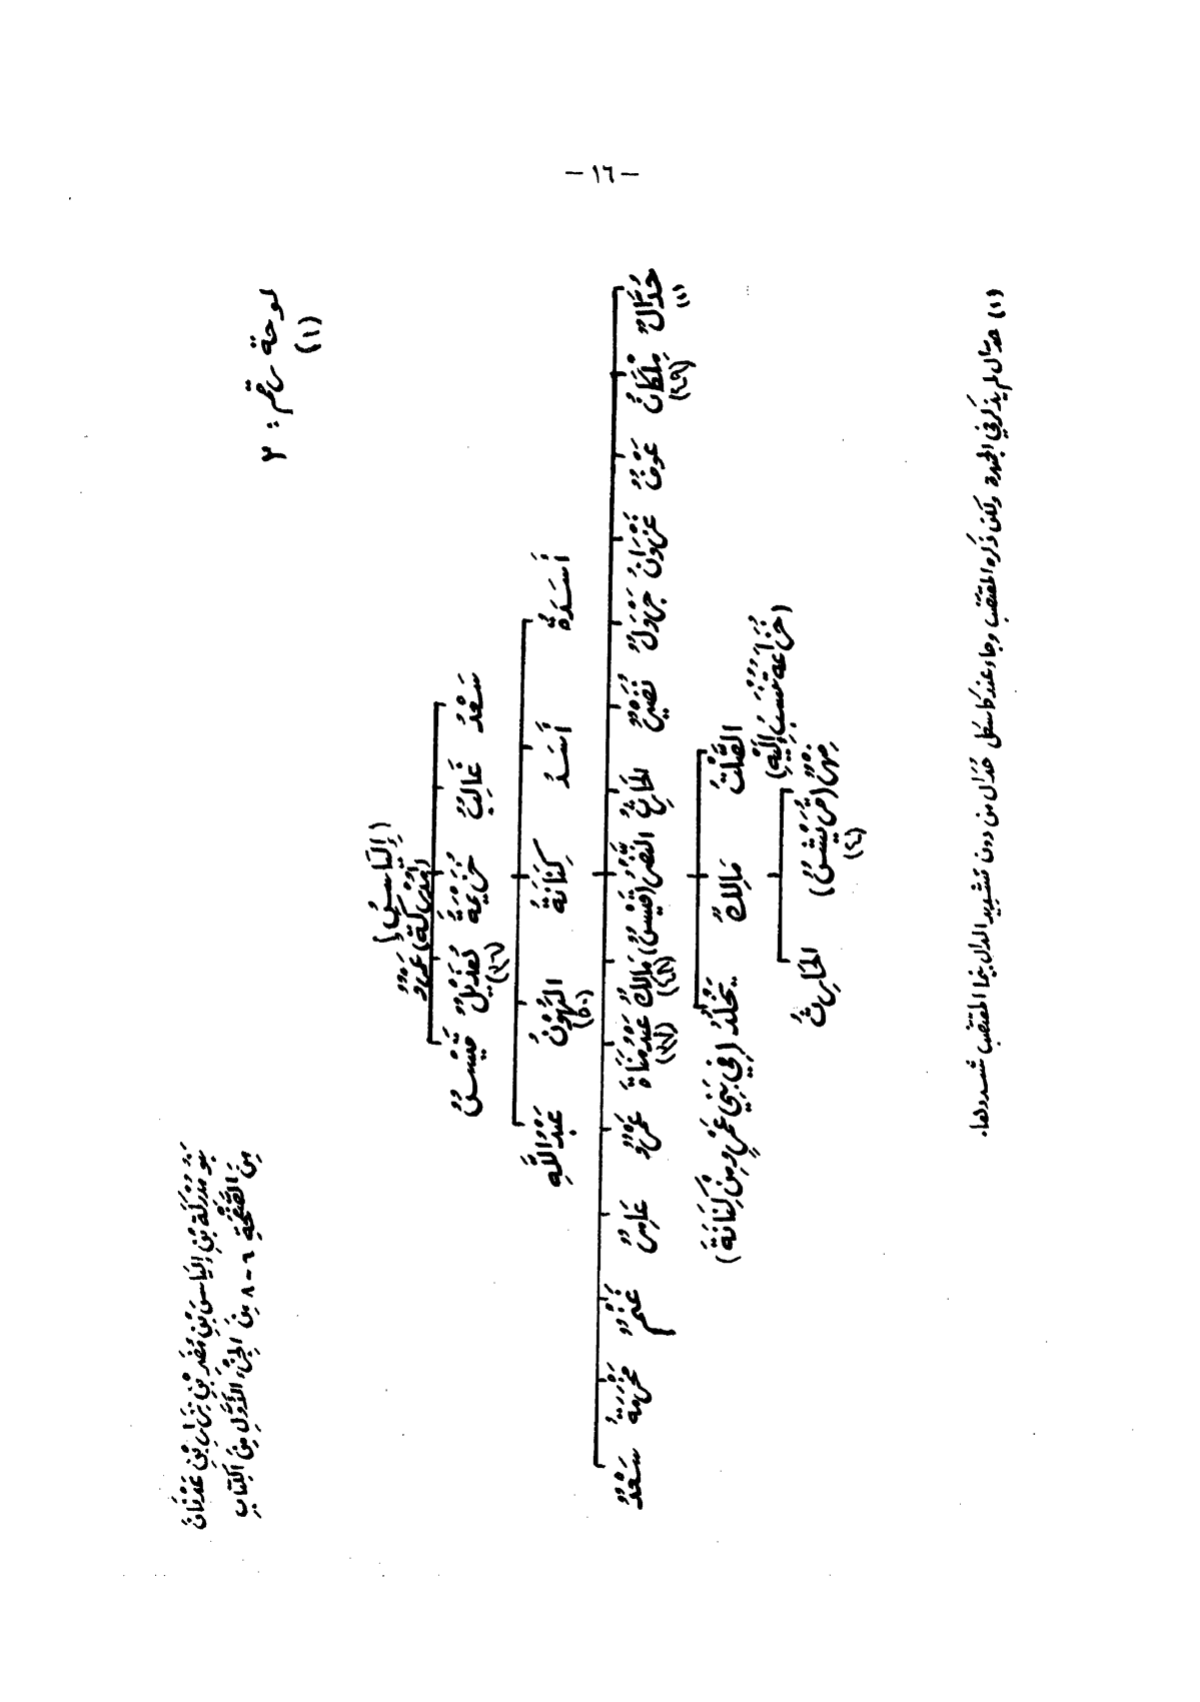 - ١٦ -
لوحة رقم : ٢
(١)
بنو مُدْرِكَةَ بْنِ إِلْيَاسَ بْنِ مُضَرَ بْنِ نِزَارِ بْنِ عَدْنَانَ
مِنَ الصَّفْحَةِ ٦ - ٨ مِنَ الجُزْءِ الأَوَّلِ مِنَ الكِتَابِ
(إِلْيَاسُ)
عَمْرٌو (مُدْرِكَةُ)
سَعْدٌ غَالِبٌ خُزَيْمَةُ هُذَيْلٌ قَيْسٌ
(٤٦)
أَسَدَةُ أَسَدٌ كِنَانَةُ الهُوْنُ عَبْدُ اللَّهِ
(٥٠)
حُدَّالٌ مِلْكَانُ عَوْفٌ غَزْوَانُ جَرْوَلٌ نُضَيْرٌ الحَارِثُ النَّضْرُ (قَيْسٌ) مَالِكٌ عَبْدُ مَنَاةَ عَمْرٌو عَامِرٌ غَنْمٌ مَخْرَمَةُ سَعْدٌ
(١) (٤٩) (٤٨) (٤٧)
الصَّلْتُ مَالِكٌ يَخْلُدُ (فِي بَنِي عَمْرِو مِنْ كِنَانَةَ)
(خُزَاعَةُ تُنْسَبُ إِلَيْهِ)
فِهْرٌ (قُرَيْشٌ) الحَارِثُ
(٤)
(١) حدّال لم يذكر في الجمهرة ولكن ذكره المقتضب وجاء عند كاسكل حُدَال من دون تشديد الدال بينما المقتضب شددها.